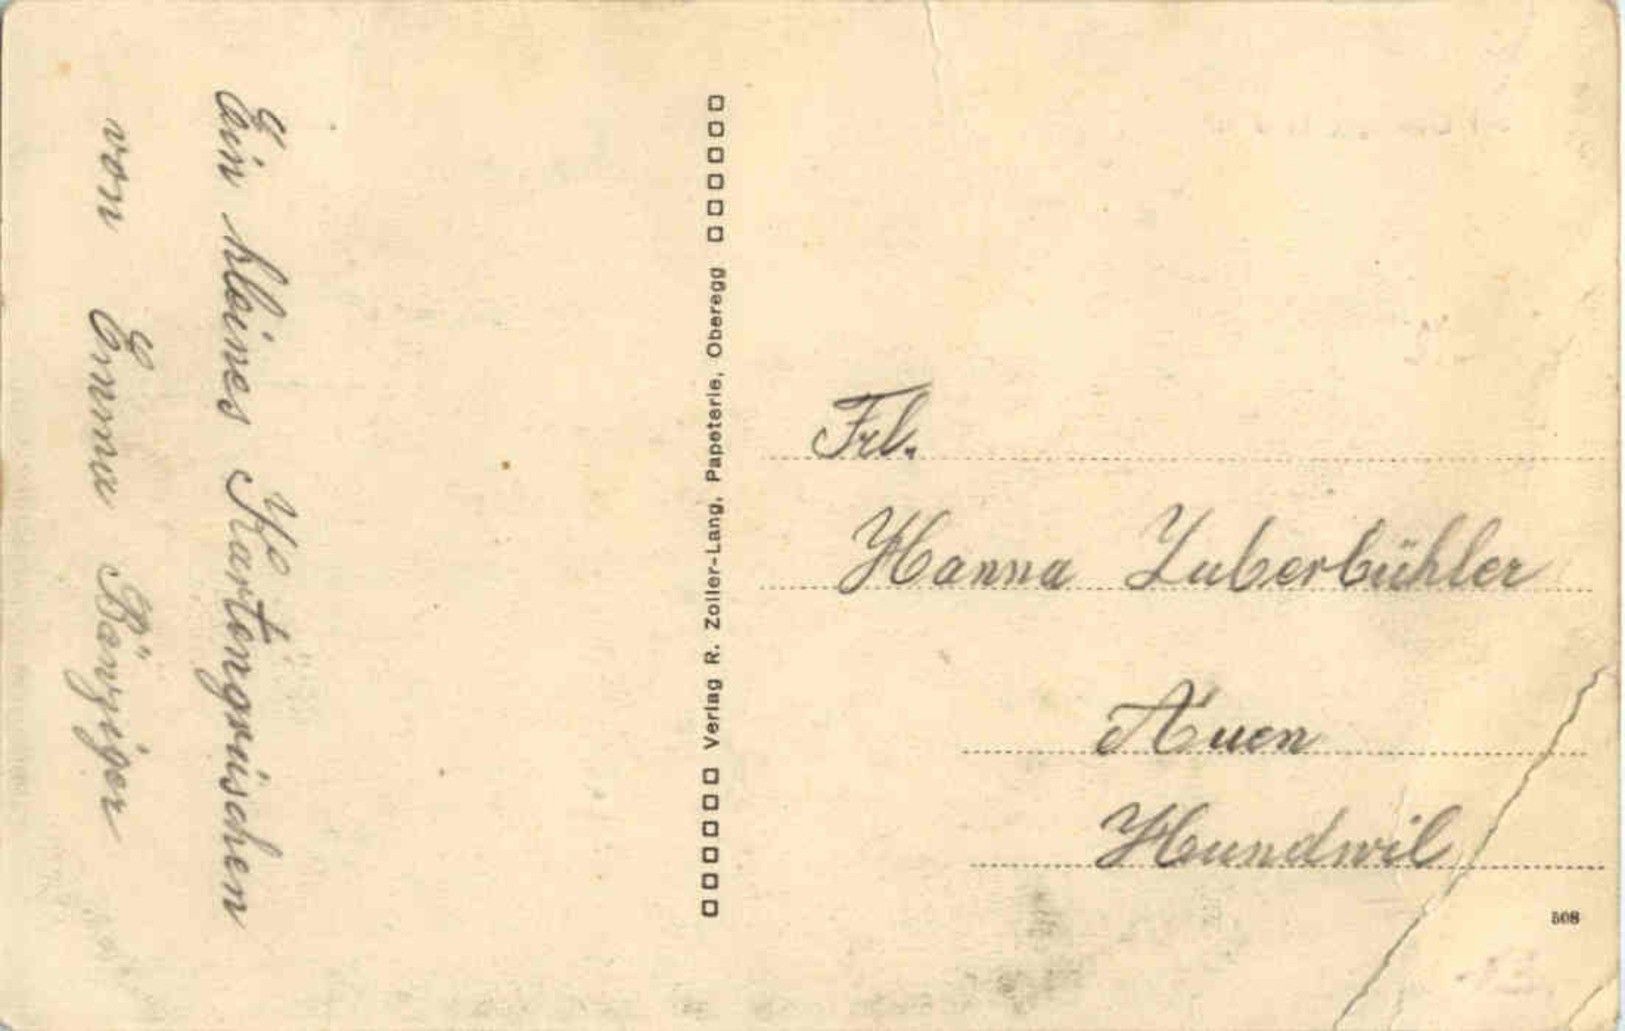 Ein kleines Kartengrüschen
von Emma Bänziger
Verlag R. Zoller-Lang, Papeterie, Oberegg
Frl.
Hanna Zuberbühler
Auen
Hundwil
508